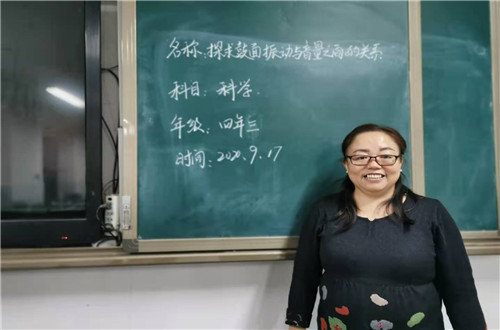 名称:探求鼓面振动与音量之间的关系
科目:科学.
年级:四年三
时间:2020.9.17